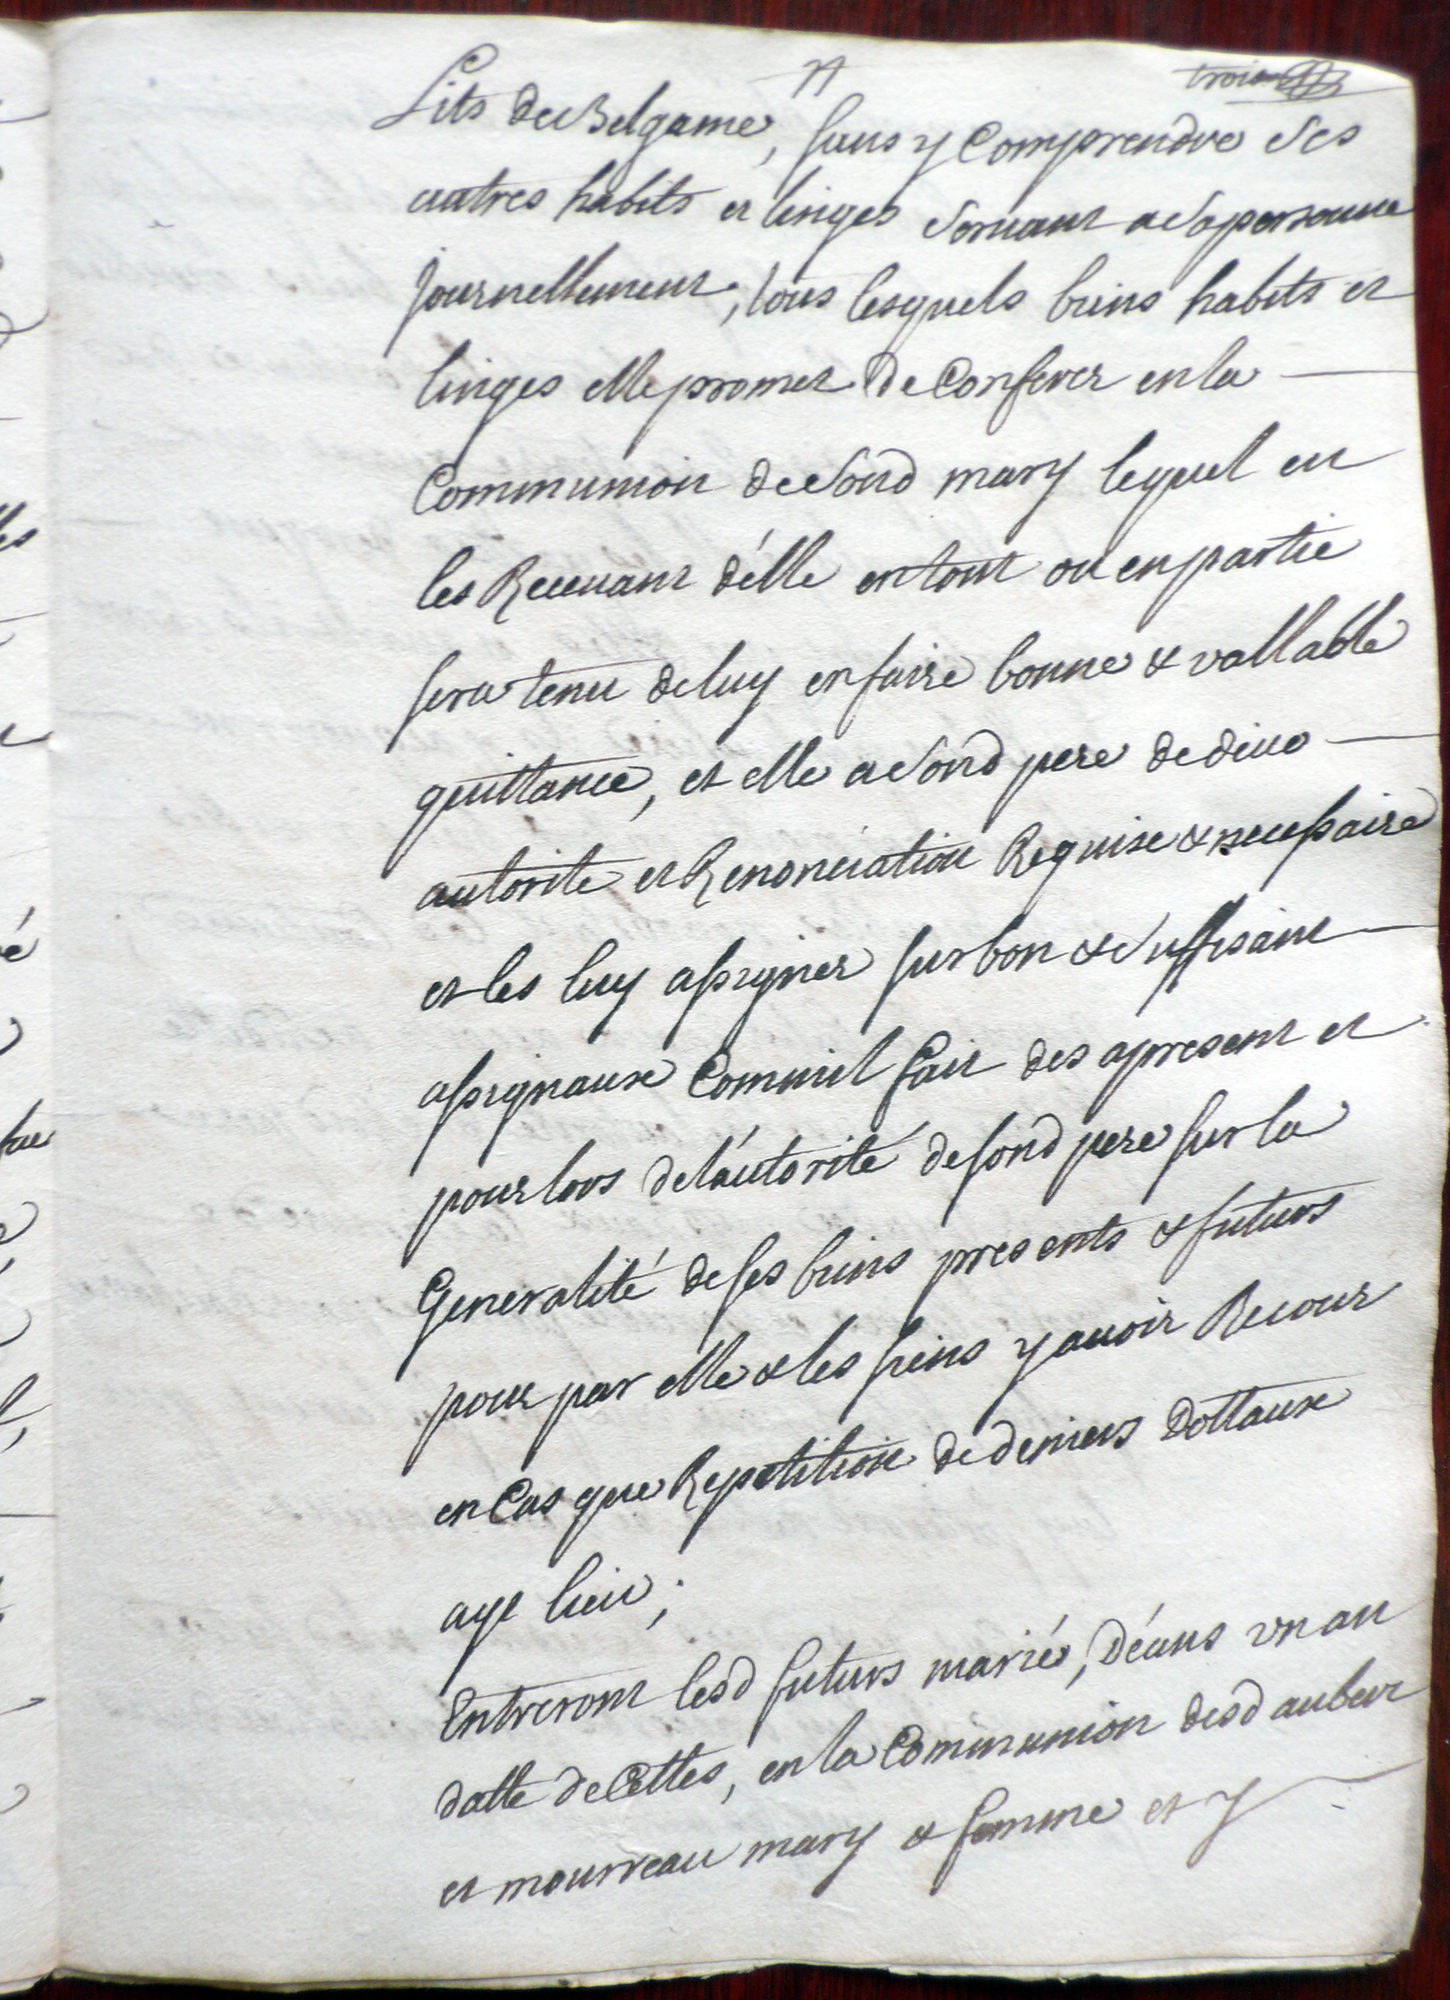 trois
Lits de Belgame, sans y Comprendre Ses
autres habits et linges Servant a Sa personne
journellement, tous lesquels biens habits et
linges elle promet de Conferer en la
Communion de Sond mary lequel en
les Recevant d'élle en tout ou en partie
sera tenu de luy en faire bonne & vallable
quittance, et elle a Sond pere de deue
autorite et Renonciation Requise & necessaire
et les luy assigner sur bon & Suffisant
assignaux Comme il fait des apresent et
pour lors de l'autorité de sond pere sur la
Generalité de ses biens presents & futurs
pour par elle & les siens y avoir Recour
en Cas que Repetition de deniers Dottaux
aye lieu;
Entreront lesd futurs marié, Déans un an
datte de Cettes, en la Communion desd
et mourreau mary & femme et y